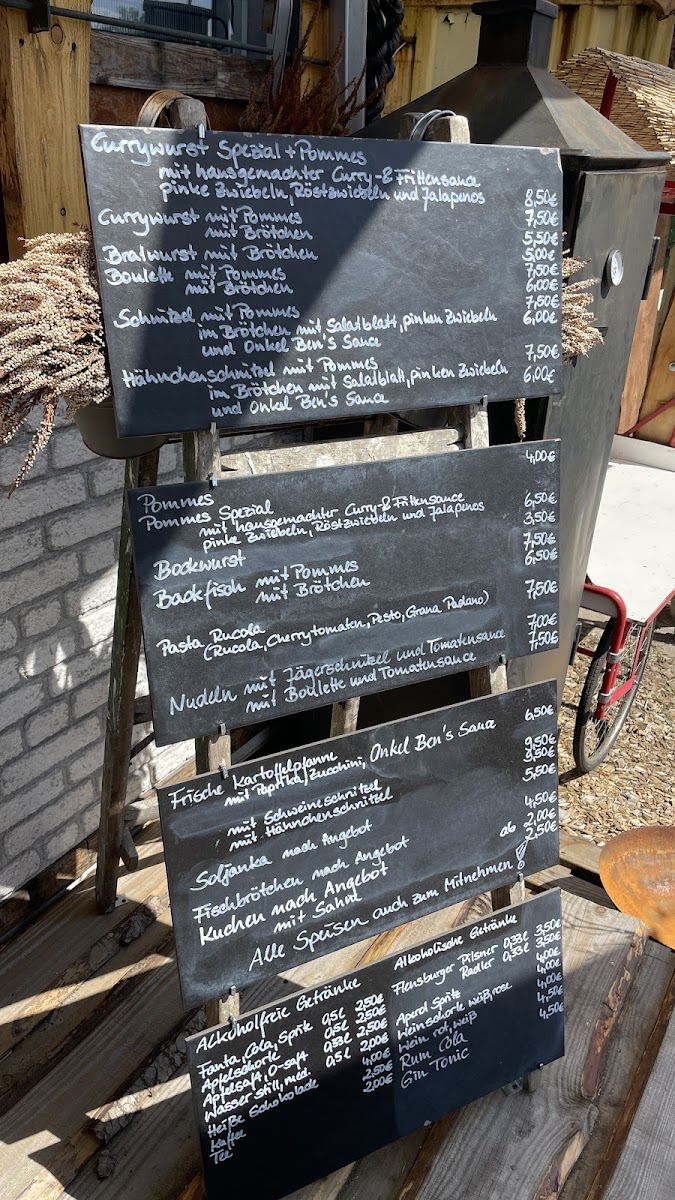 Currywurst Spezial + Pommes
mit hausgemachter Curry- & Frittensauce
pinke Zwiebeln, Röstzwiebeln und Jalapenos 8,50€
Currywurst mit Pommes 7,50€
mit Brötchen 5,50€
Bratwurst mit Brötchen 5,00€
Boulette mit Pommes 7,50€
mit Brötchen 6,00€
Schnitzel mit Pommes 7,50€
im Brötchen mit Salatblatt, pinken Zwiebeln 6,00€
und Onkel Ben's Sauce
Hähnchenschnitzel mit Pommes 7,50€
im Brötchen mit Salatblatt, pinken Zwiebeln 6,00€
und Onkel Ben's Sauce
Pommes 4,00€
Pommes Spezial
mit hausgemachter Curry- & Frittensauce 6,50€
pinke Zwiebeln, Röstzwiebeln und Jalapenos
Bockwurst 3,50€
Backfisch mit Pommes 7,50€
mit Brötchen 6,50€
Pasta Rucola 7,50€
(Rucola, Cherrytomaten, Pesto, Grana Padano)
Nudeln mit Jägerschnitzel und Tomatensauce 7,00€
mit Boulette und Tomatensauce 7,50€
Frische Kartoffelpfanne 6,50€
mit Paprika, Zucchini, Onkel Ben's Sauce
mit Schweineschnitzel 9,50€
mit Hähnchenschnitzel 9,50€
Soljanka nach Angebot 5,50€
Fischbrötchen nach Angebot 4,50€
Kuchen nach Angebot ab 2,00€
mit Sahne 2,50€
Alle Speisen auch zum Mitnehmen!
Alkoholfreie Getränke
Fanta, Cola, Sprite 0,5l 2,50€
Apfelschorle 0,5l 2,50€
Apfelsaft, O-saft 0,33l 2,50€
Wasser still, med. 0,5l 2,00€
Heiße Schokolade 4,00€
Kaffee 2,50€
Tee 2,00€
Alkoholische Getränke
Flensburger Pilsner 0,33l 3,50€
Radler 0,33l 3,50€
Aperol Spritz 4,00€
Weinschorle weiß, rose 4,00€
Wein rot, weiß 4,00€
Rum Cola 4,50€
Gin Tonic 4,50€